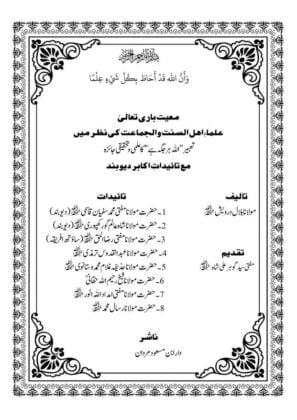 بسم اللہ الرحمن الرحیم
وَأَنَّ اللہَ قَدْ أَحَاطَ بِكُلِّ شَيْءٍ عِلْمًا
معیت باری تعالیٰ
علماء اهل السنت والجماعت کی نظر میں
تعبیر "اللہ ہر جگہ ہے" کا علمی و تحقیقی جائزہ
مع تائیدات اکابر دیوبند
تالیف
مولانا بلال درویش
تقدیم
مفتی سید گوہر علی شاہ
تائیدات
1- حضرت مولانا مفتی محمد سفیان قاسمی (دیوبند)
2- حضرت مولانا شاہ عالم گورکھپوری (دیوبند)
3- حضرت مولانا مفتی رضاء الحق (ساؤتھ افریقہ)
4- حضرت مولانا عبدالقدوس ترمذی
5- حضرت مولانا حذیفہ غلام محمد وستانوی
6- حضرت مولانا شیخ رحیم اللہ حقانی
7- حضرت مولانا مفتی امداد اللہ انور
8- حضرت مولانا رسال محمد
ناشر
دار نان مسعود مردان